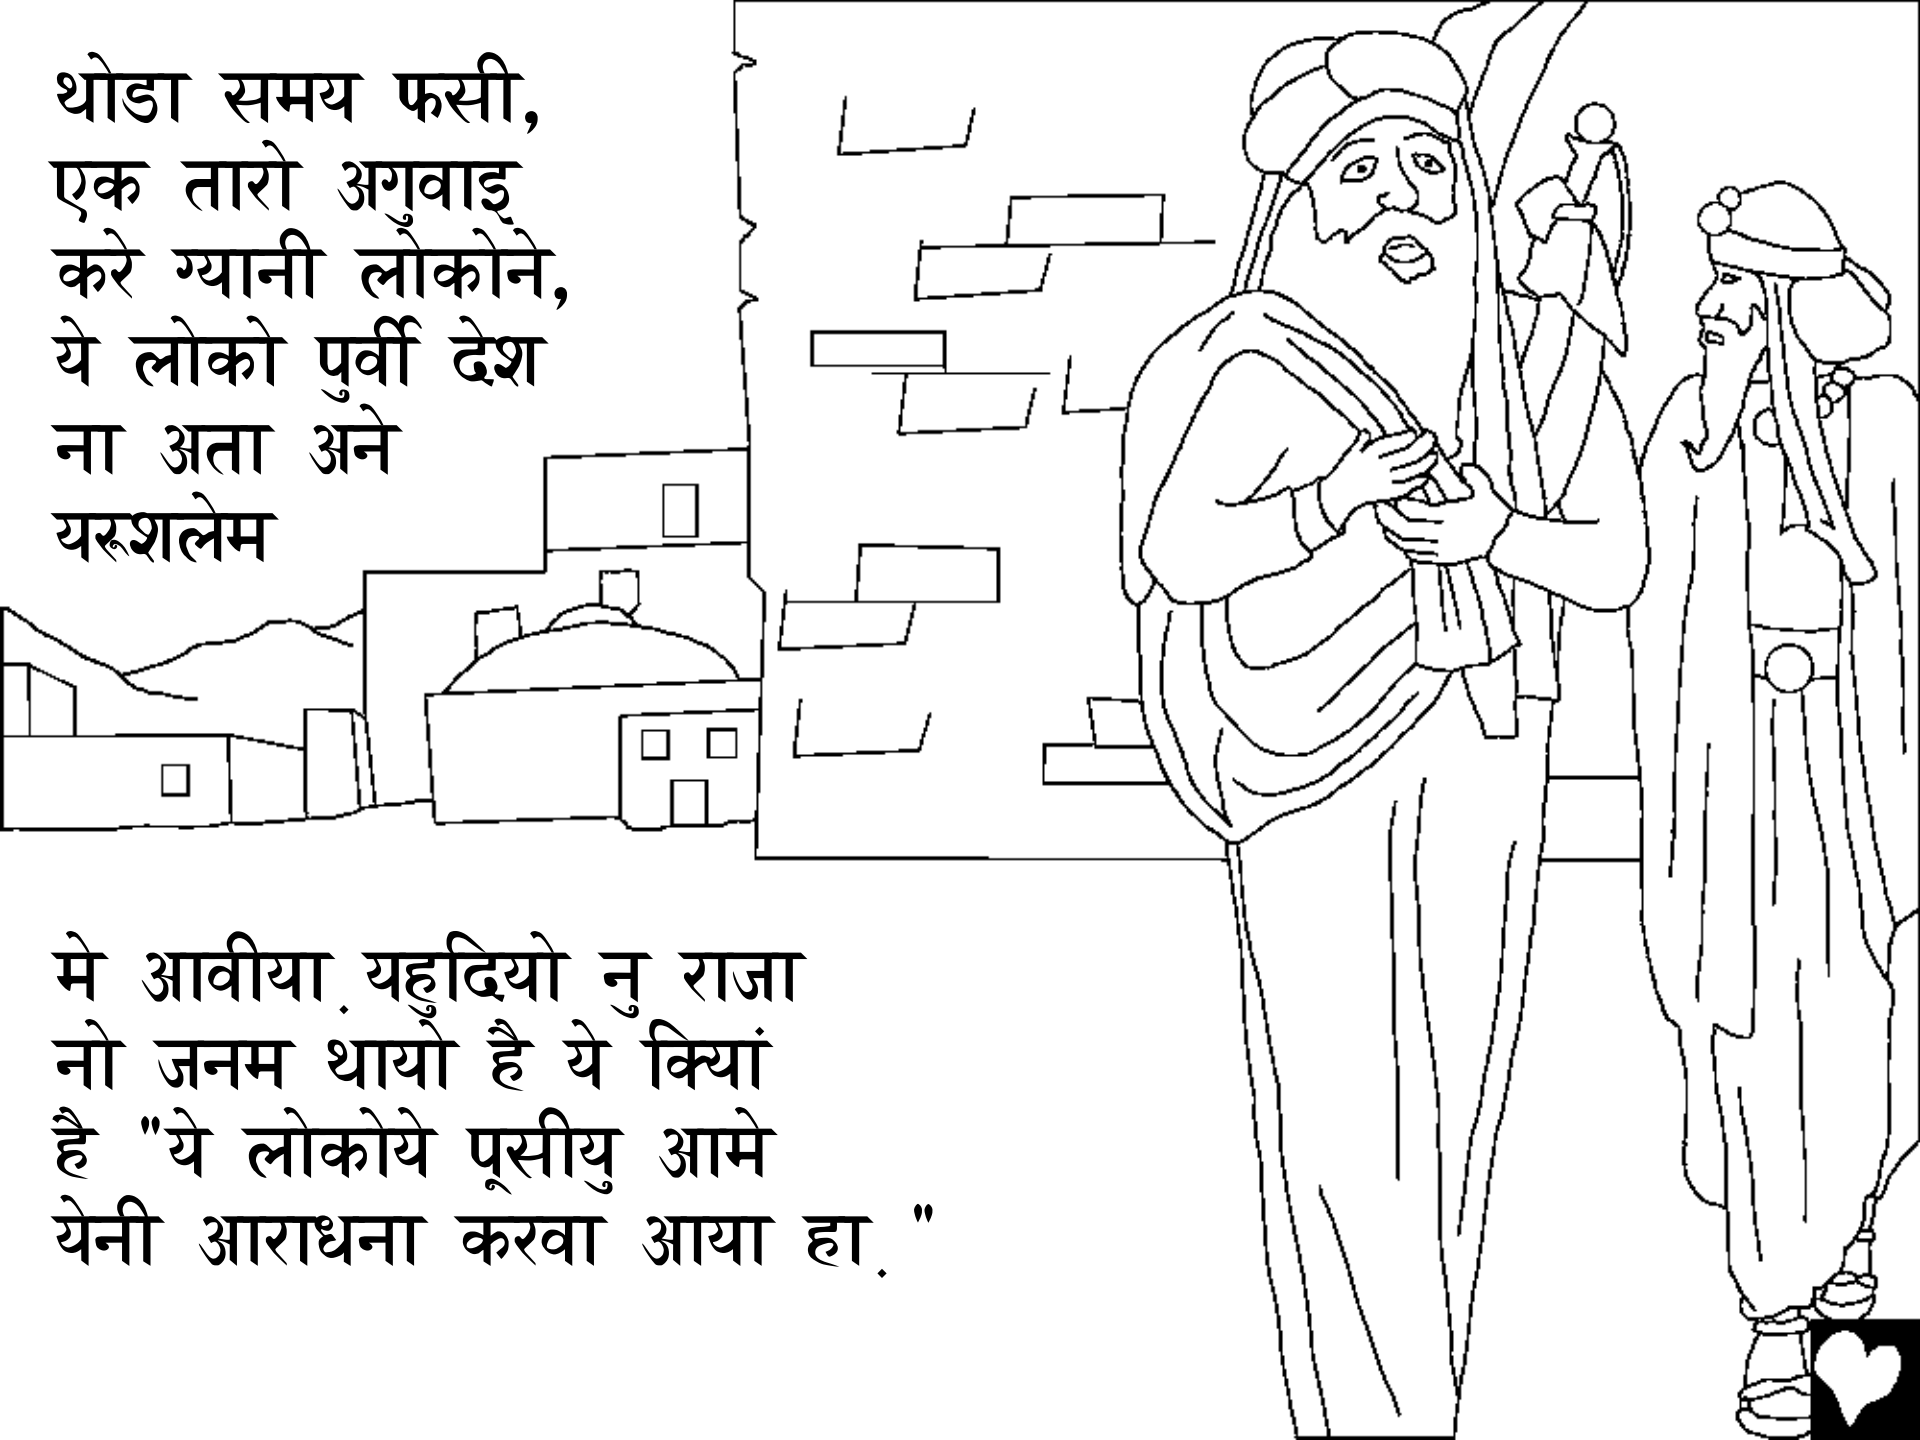 थोडा समय फसी,
एक तारो अगुवाइ
करे ग्यानी लोकोने,
ये लोको पुर्वी देश
ना अता अने
यरूशलेम
मे आवीया. यहुदियो नु राजा
नो जनम थायो है ये कियां
है "ये लोकोये पूसीयु आमे
येनी आराधना करवा आया हा. "